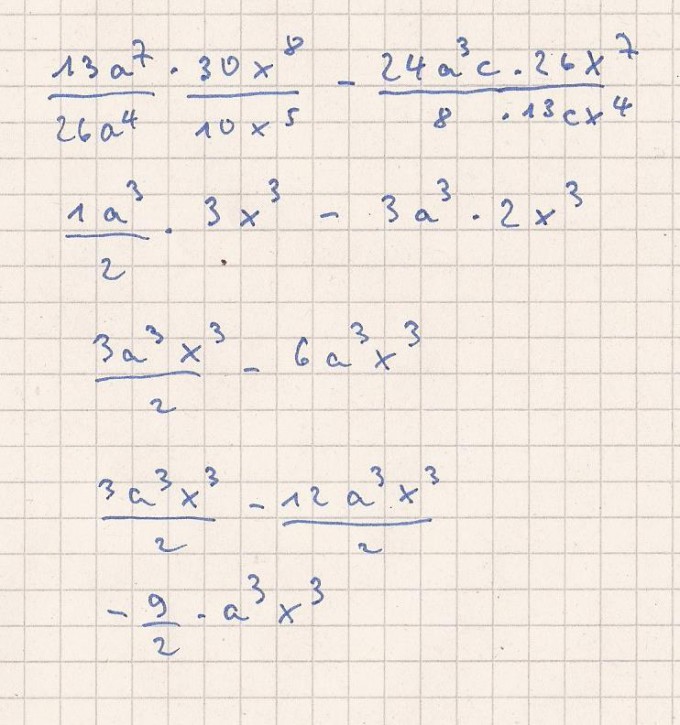 13a⁷/26a⁴ · 30x⁸/10x⁵ - 24a³c · 26x⁷/8 · 13cx⁴
1a³/2 · 3x³ - 3a³ · 2x³
3a³x³/2 - 6a³x³
3a³x³/2 - 12a³x³/2
- 9/2 · a³x³